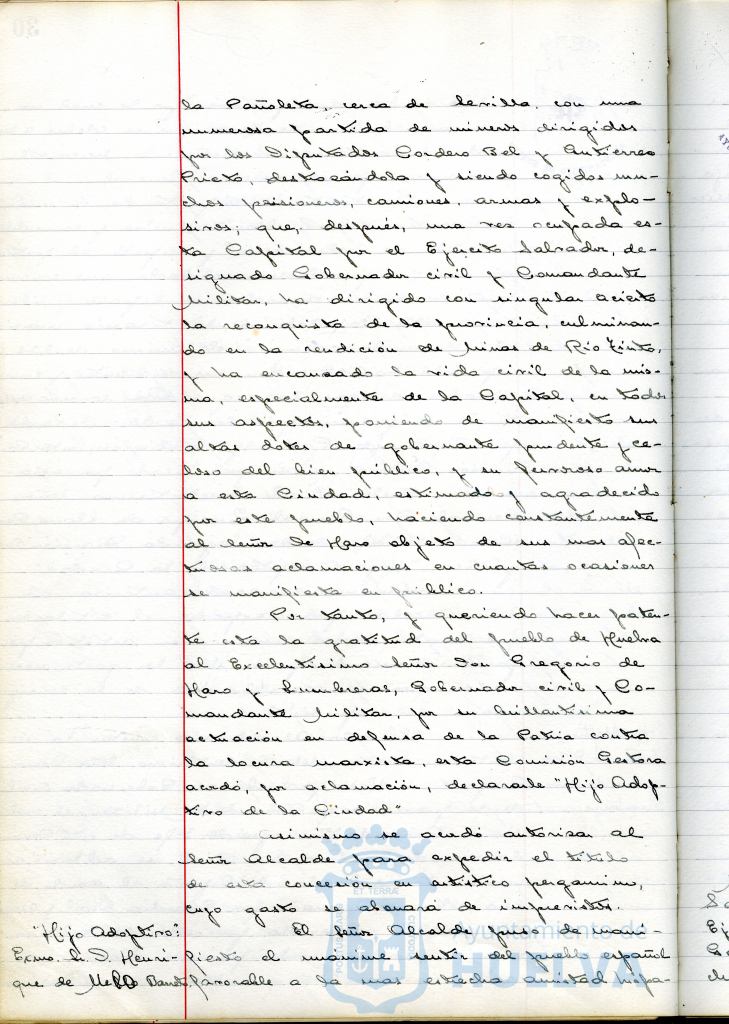 la Pañoleta, cerca de Sevilla, con una
numerosa partida de mineros dirigidos
por los Diputados Cordero Bel y Gutierrez
Prieto, destrozándola y siendo cogidos mu-
chos prisioneros, camiones, armas y explo-
sivos; que, después, una vez ocupada es-
ta Capital por el Ejercito Salvador, de-
signado Gobernador civil y Comandante
Militar, ha dirigido con singular acierto
la reconquista de la provincia, culminan-
do en la rendición de Minas de Rio Tinto,
y ha encauzado la vida civil de la mis-
ma, especialmente de la Capital, en todos
sus aspectos, poniendo de manifiesto sus
altas dotes de gobernante prudente y ce-
loso del bien público, y su fervoroso amor
a esta Ciudad, estimado y agradecido
por este pueblo, haciendo constantemente
al Señor de Haro objeto de sus mas afec-
tuosas aclamaciones en cuantas ocasiones
se manifiesta en público.
Por tanto, y queriendo hacer paten-
te esta la gratitud del pueblo de Huelva
al Excelentísimo Señor Don Gregorio de
Haro y Lumbreras, Gobernador civil y Co-
mandante Militar, por su brillantísima
actuación en defensa de la Patria contra
la locura marxista, esta Comisión Gestora
acordó, por aclamación, declararle "Hijo Adop-
tivo de la Ciudad"
Asimismo se acordó autorizar al
Señor Alcalde para expedir el titulo
de esta concesión en artístico pergamino,
cuyo gasto se abonará de imprevistos.
"Hijo Adoptivo": El Señor Alcalde puso de mani-
Excmo. Sr. D. Henri- fiesto el unanime sentir del pueblo español
que de Mello Barreto favorable a la mas estrecha amistad hispa-
Ayuntamiento de
HUELVA